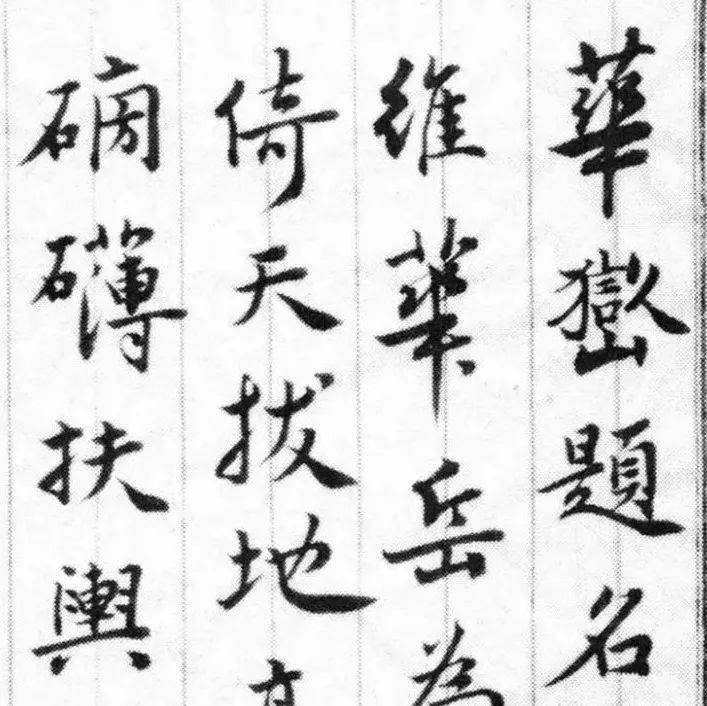 華嶽題名
維華岳為
倚天拔地
磅礴扶輿